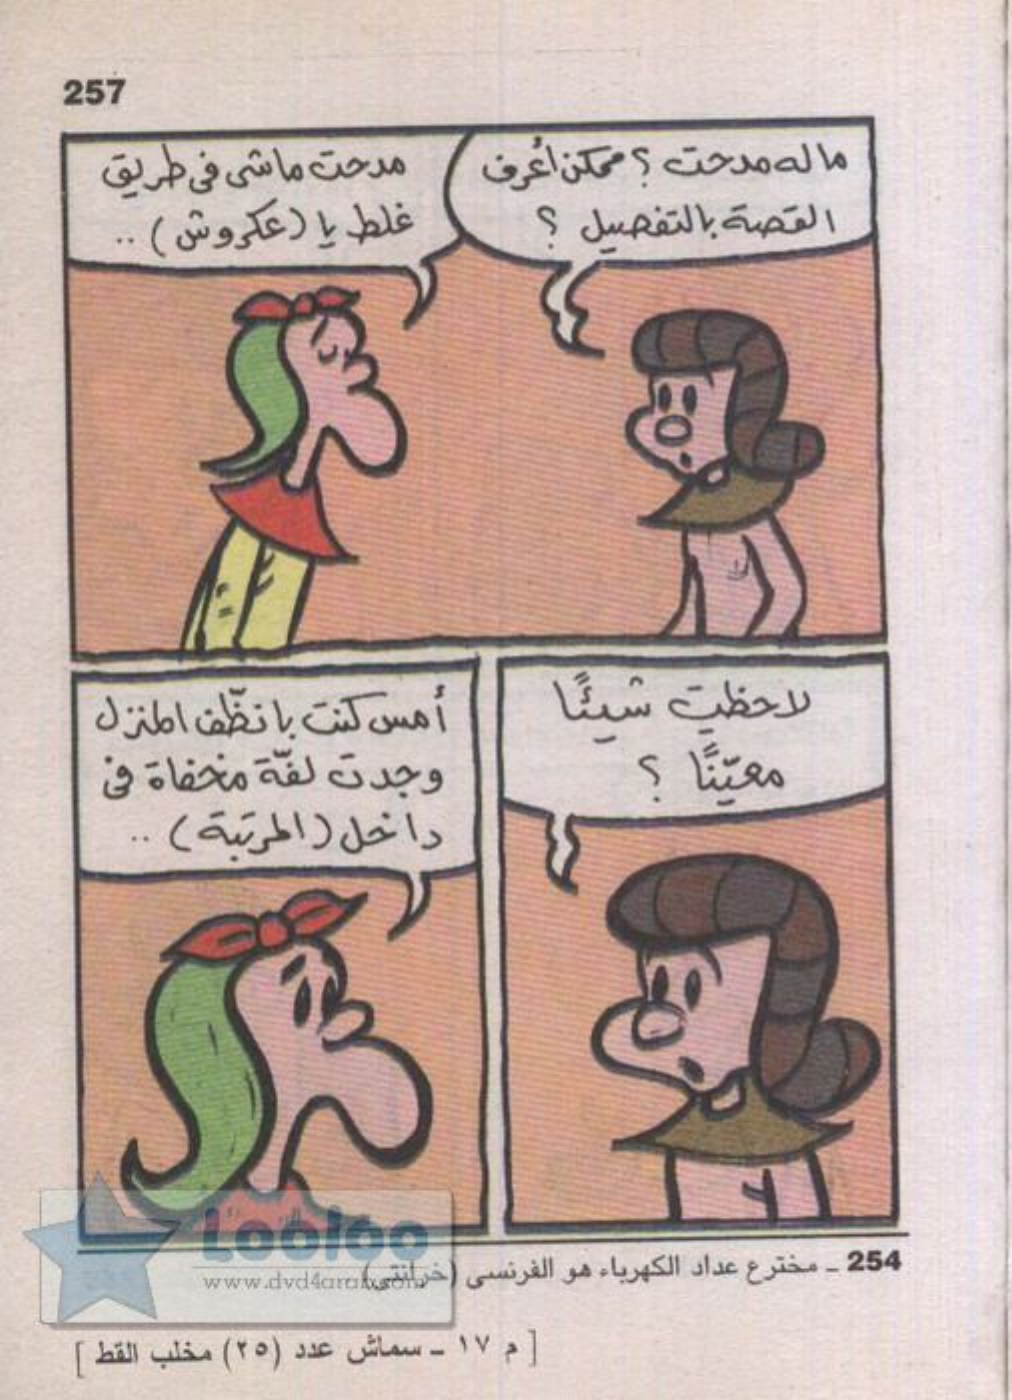 257
ما له مدحت ؟ ممكن أعرف
القصة بالتفصيل ؟
مدحت ماشى فى طريق
غلط يا (عكروش) ..
لاحظتِ شيئًا
معيّنًا ؟
أمس كنت بانظّف المنزل
وجدت لفّة مخفاة فى
داخل (المرتبة) ..
254 ـ مخترع عداد الكهرباء هو الفرنسى
Looloo
www.dvd4arab.com
[ م ١٧ ـ سماش عدد (٢٥) مخلب القط ]